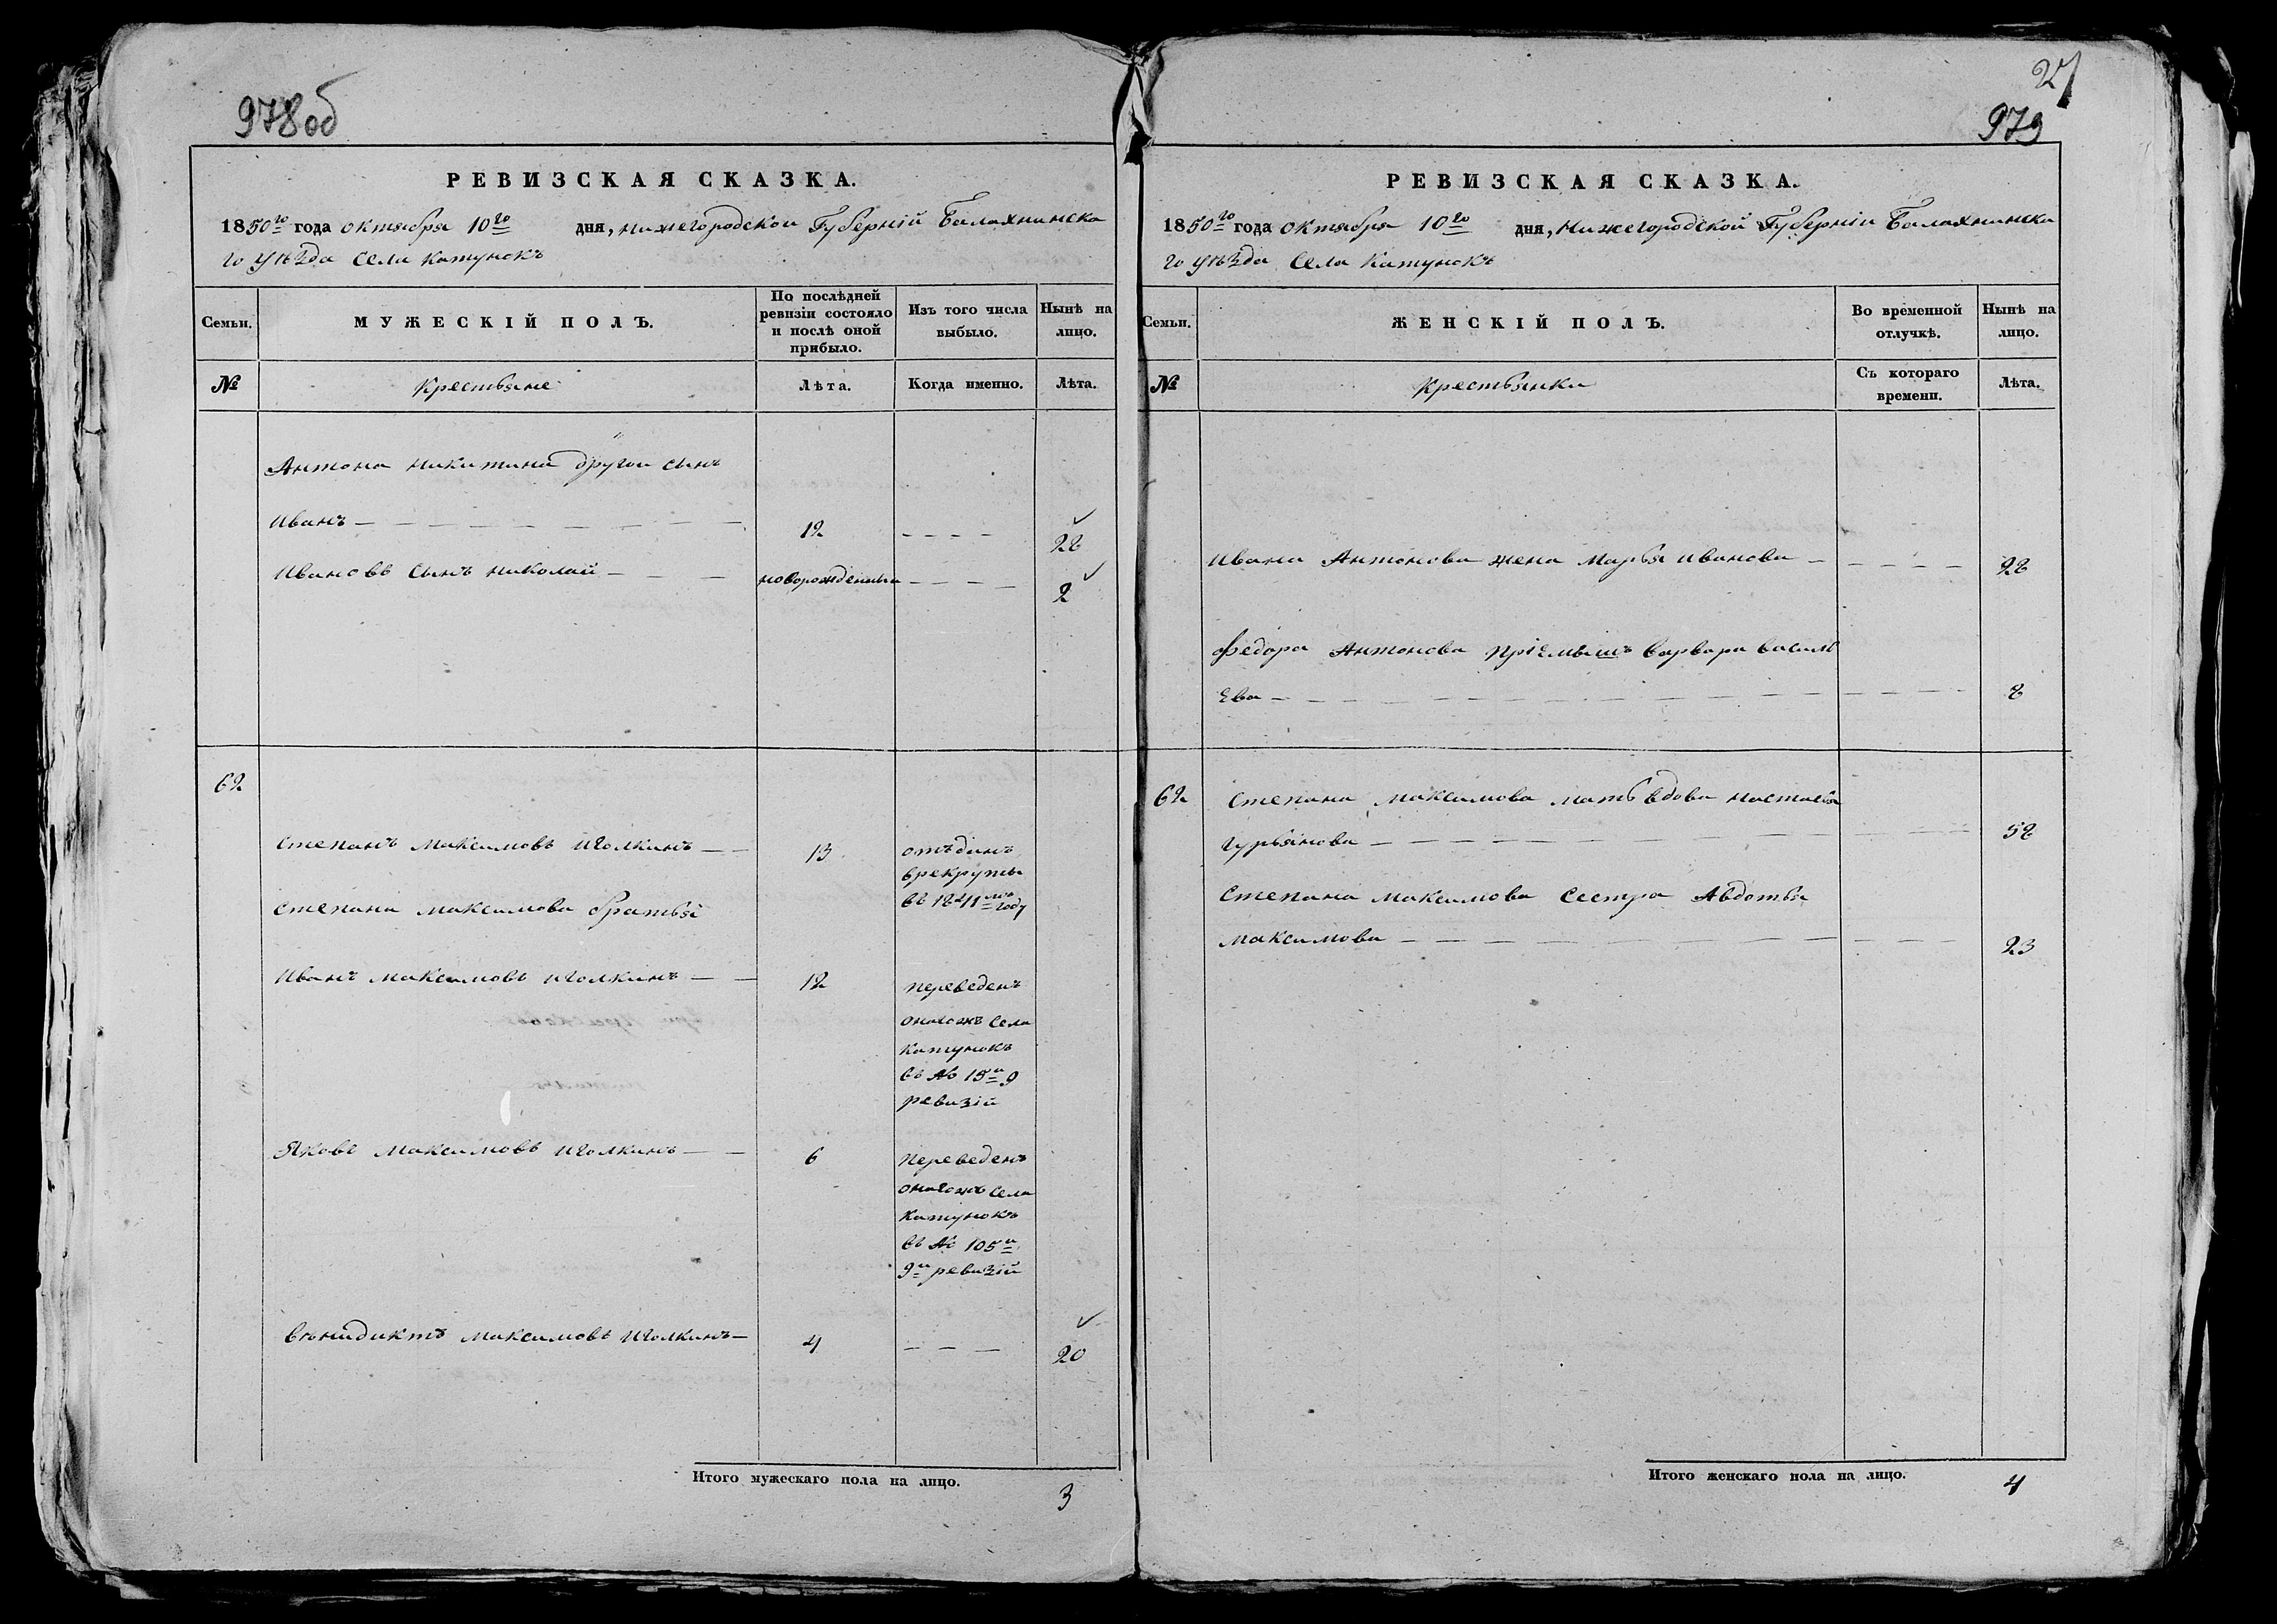 978об
РЕВИЗСКАЯ СКАЗКА.
1850го года октября 10го дня, нижегородскои Губернiй Балахнинска
го уѣзда Села Катунокъ
Семьи.
МУЖЕСКIЙ ПОЛЪ.
По послѣдней
ревизiи состояло
и послѣ оной
прибыло.
Изъ того числа
выбыло.
Нынѣ на
лицо.
№
Крестьяне
Лѣта.
Когда именно.
Лѣта.
Антона никитина другои сынъ
Иванъ 12 28
Ивановъ Сынъ николай новорожденный 2
62
Степанъ Максимовъ Иголкинъ 13 отъданъ
врекруты
въ 1841мъ году
Степана максимова братья
Иванъ Максимовъ Иголкинъ 12 переведенъ
оногожъ села
Катунокъ
въ № 15й 9
ревизiй
Яковъ Максимовъ Иголкинъ 6 Переведенъ
оногожъ Села
Катунокъ
въ № 105й
9й ревизiй
Венидиктъ Максимовъ Иголкинъ 4 20
Итого мужескаго пола на лицо.
3
27
979
РЕВИЗСКАЯ СКАЗКА.
1850го года октября 10го дня, Нижегородской Губернiи Балахнинска
го уѣзда Села Катунокъ
Семьи.
ЖЕНСКIЙ ПОЛЪ.
Во временной
отлучкѣ.
Нынѣ на
лицо.
№
Крестьянки
Съ котораго
времени.
Лѣта.
Ивана Антонова жена Марья Иванова 28
Федора Антонова прiемышъ Варвара василь
ева 8
62 Степана Максимова мать вдова настасья
гурьянова 58
Степана Максимова Сестра Авдотья
Максимова 23
Итого женскаго пола на лицо.
4